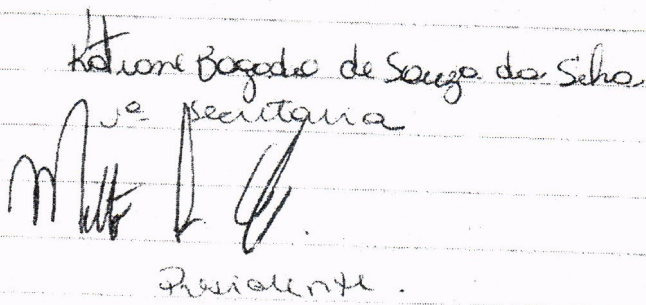 Katiane Bogado de Souza da Silva
1ª secretaria
Presidente.